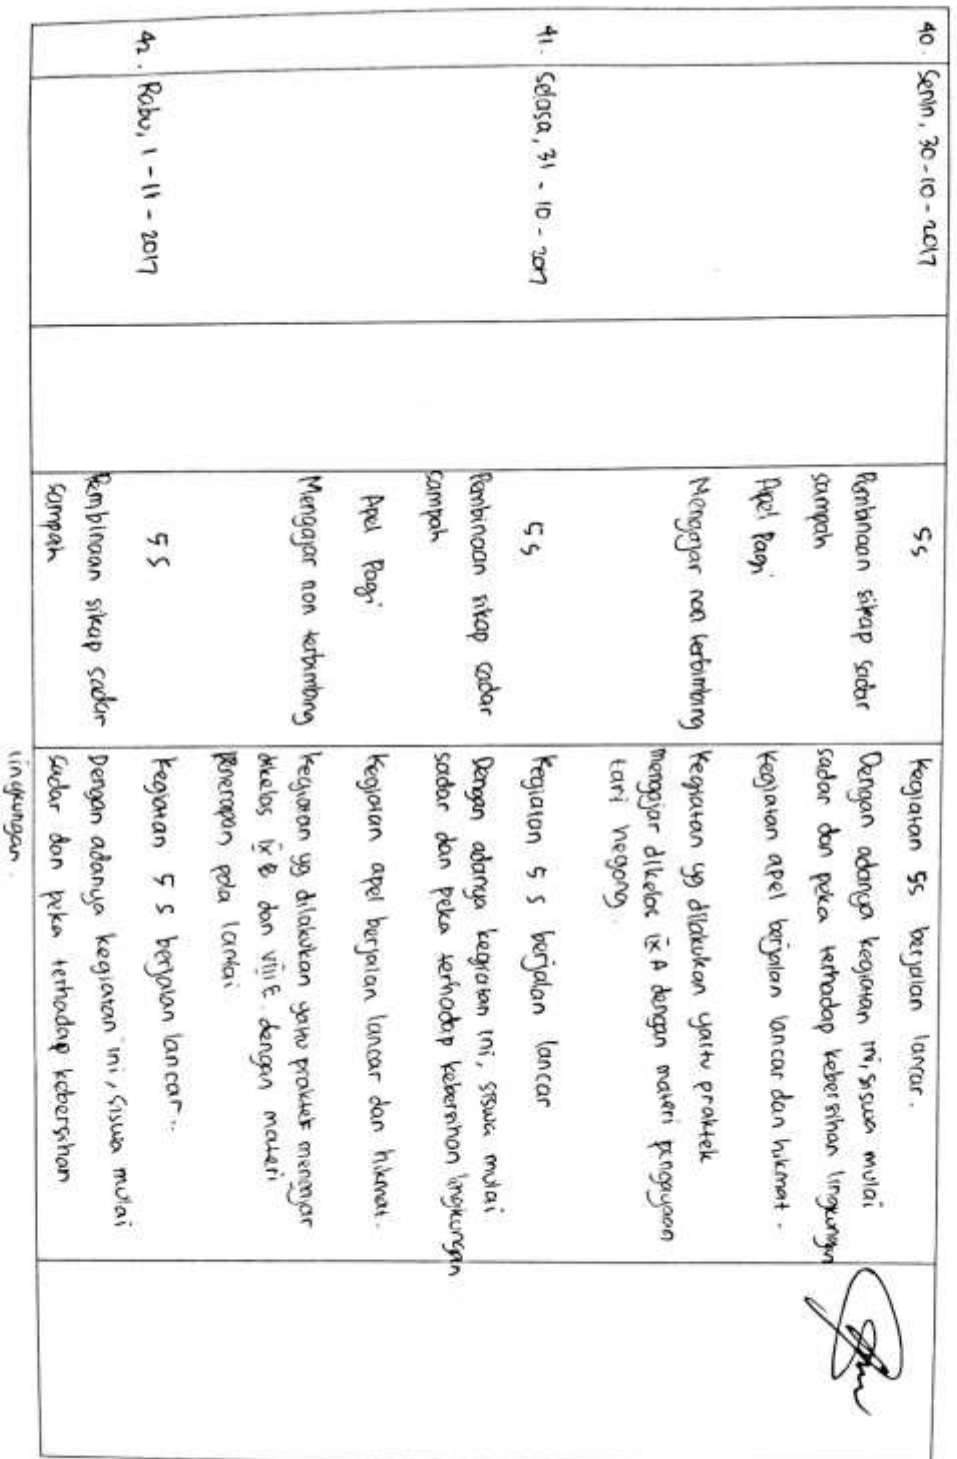 40. Senin, 30-10-2017
5s
Kegiatan 5s berjalan lancar.
Pembinaan sikap sadar
sampah
Dengan adanya kegiatan ini, siswa mulai
sadar dan peka terhadap kebersihan lingkungan
Apel Pagi
Kegiatan apel berjalan lancar dan hikmat.
Mengajar non terbimbing
Kegiatan yg dilakukan yaitu praktek
mengajar dikelas IX A dengan materi
tari negong.
41. Selasa, 31 - 10 - 2017
5 s
Kegiatan 5 s berjalan lancar
Pembinaan sikap sadar
sampah
Dengan adanya kegiatan ini, siswa mulai
sadar dan peka terhadap kebersihan lingkungan
Apel Pagi
Kegiatan apel berjalan lancar dan hikmat.
Mengajar non terbimbing
Kegiatan yg dilakukan yaitu praktek mengajar
dikelas IX B dan VIII E dengan materi
penerapan pola lantai
42. Rabu, 1 - 11 - 2017
5 s
Kegiatan 5 s berjalan lancar..
Pembinaan sikap sadar
sampah
Dengan adanya kegiatan ini, siswa mulai
sadar dan peka terhadap kebersihan
lingkungan.